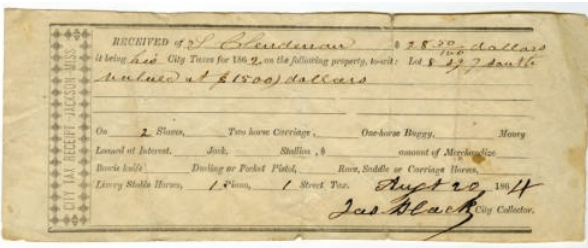 CITY TAX RECEIPT - JACKSON - MISS
RECEIVED of S Clendenan $ 28 50/100 dollars
it being his City Taxes for 1862, on the following property, to-wit: Lot 8 sq 7 south
valued at $1500) dollars
On 2 Slaves, Two horse Carriage, One-horse Buggy, Money
Loaned at Interest. Jack. Stallion, $ amount of Merchandize
Bowie knife Dueling or Pocket Pistol, Race, Saddle or Carriage Horses,
Livery Stable Horses, 1 Piano, 1 Street Tax. Augt 20 1864
Jas Black City Collector.